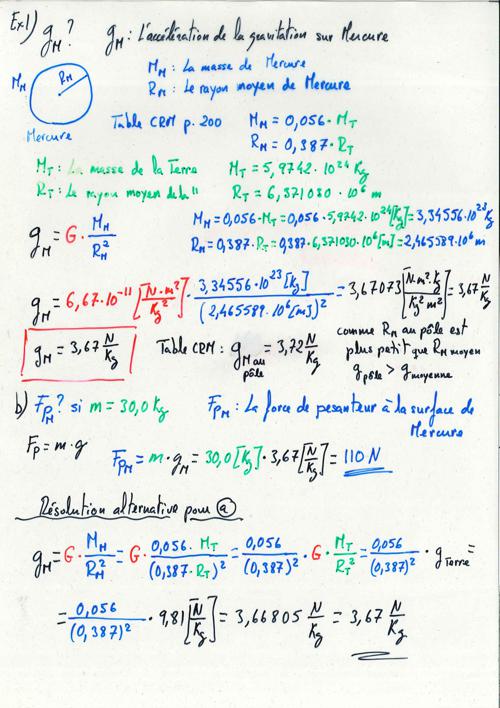 Ex1) g_M? g_M : L'accélération de la gravitation sur Mercure
M_M : La masse de Mercure
M_M R_M R_M : Le rayon moyen de Mercure
Mercure Table CRM p. 200 M_M = 0,056 · M_T
R_M = 0,387 · R_T
M_T : La masse de la Terre M_T = 5,9742 · 10^24 Kg
R_T : Le rayon moyen de la " R_T = 6,371030 · 10^6 m
g_M = G · M_M / R_M^2 M_M = 0,056 · M_T = 0,056 · 5,9742 · 10^24 [Kg] = 3,34556 · 10^23 Kg
R_M = 0,387 · R_T = 0,387 · 6,371030 · 10^6 [m] = 2,465589 · 10^6 m
g_M = 6,67 · 10^-11 [N · m^2 / Kg^2] · 3,34556 · 10^23 [Kg] / (2,465589 · 10^6 [m])^2 = 3,67073 [N · m^2 · Kg / Kg^2 m^2] = 3,67 N/Kg
g_M = 3,67 N/Kg Table CRM : g_M au pôle = 3,72 N/Kg
comme R_M au pôle est
plus petit que R_M moyen
g_pôle > g_moyenne
b) F_pM? si m = 30,0 Kg F_pM : La force de pesanteur à la surface de
Mercure
F_p = m · g F_pM = m · g_M = 30,0 [Kg] · 3,67 [N/Kg] = 110 N
Résolution alternative pour a
g_M = G · M_M / R_M^2 = G · 0,056 · M_T / (0,387 · R_T)^2 = 0,056 / (0,387)^2 · G · M_T / R_T^2 = 0,056 / (0,387)^2 · g_Terre =
= 0,056 / (0,387)^2 · 9,81 [N/Kg] = 3,66805 N/Kg = 3,67 N/Kg